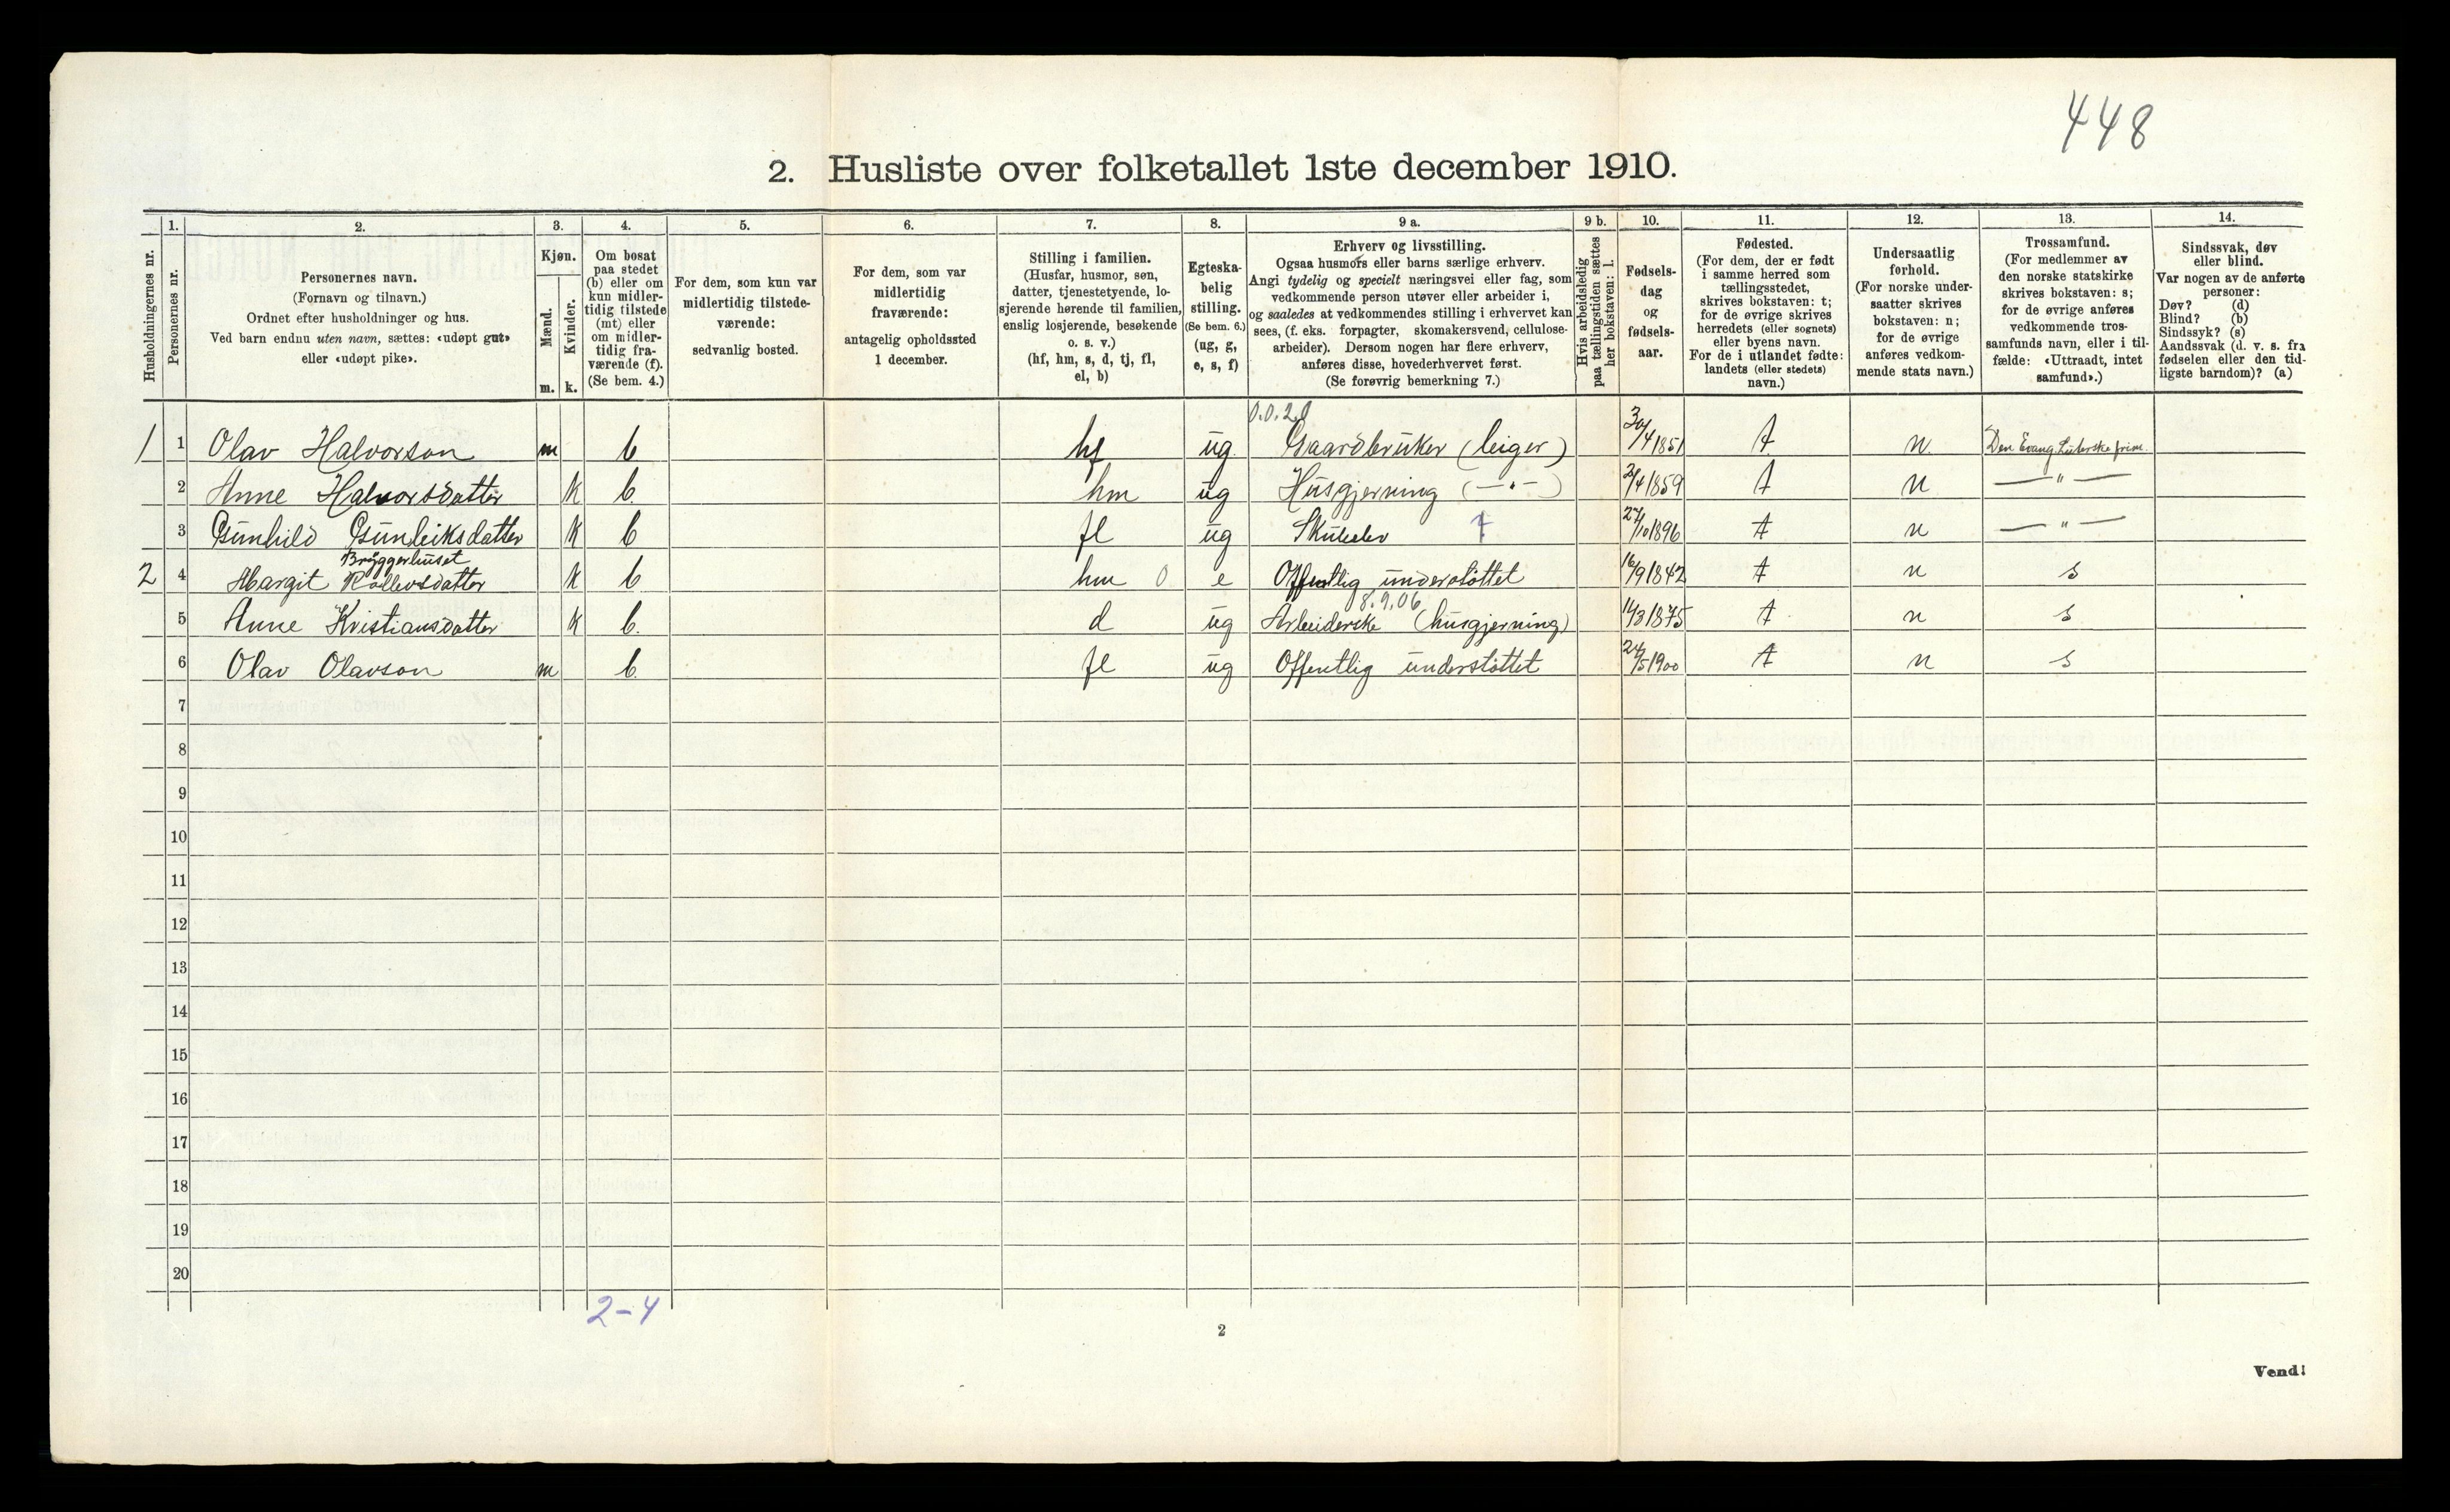 448
2. Husliste over folketallet 1ste december 1910.
Husholdningernes nr.
1.
Personernes nr.
2.
Personernes navn.
(Fornavn og tilnavn.)
Ordnet efter husholdninger og hus.
Ved barn endnu uten navn, sættes: «udøpt gut»
eller «udøpt pike».
3.
Kjøn.
Mænd.
Kvinder.
m. k.
4.
Om bosat
paa stedet
(b) eller om
kun midler-
tidig tilstede
(mt) eller
om midler-
tidig fra-
værende (f).
(Se bem. 4.)
5.
For dem, som kun var
midlertidig tilstede-
værende:
sedvanlig bosted.
6.
For dem, som var
midlertidig
fraværende:
antagelig opholdssted
1 december.
7.
Stilling i familien.
(Husfar, husmor, søn,
datter, tjenestetyende, lo-
sjerende hørende til familien,
enslig losjerende, besøkende
o. s. v.)
(hf, hm, s, d, tj, fl,
el, b)
8.
Egteska-
belig
stilling.
(Se bem. 6.)
(ug, g,
e, s, f)
9 a.
Erhverv og livsstilling.
Ogsaa husmors eller barns særlige erhverv.
Angi tydelig og specielt næringsvei eller fag, som
vedkommende person utøver eller arbeider i,
og saaledes at vedkommendes stilling i erhvervet kan
sees, (f. eks. forpagter, skomakersvend, cellulose-
arbeider). Dersom nogen har flere erhverv,
anføres disse, hovederhvervet først.
(Se forøvrig bemerkning 7.)
9 b.
Hvis arbeidsledig
paa tællingstiden sættes
her bokstaven: l.
10.
Fødsels-
dag
og
fødsels-
aar.
11.
Fødested.
(For dem, der er født
i samme herred som
tællingsstedet,
skrives bokstaven: t;
for de øvrige skrives
herredets (eller sognets)
eller byens navn.
For de i utlandet fødte:
landets (eller stedets)
navn.)
12.
Undersaatlig
forhold.
(For norske under-
saatter skrives
bokstaven: n;
for de øvrige
anføres vedkom-
mende stats navn.)
13.
Trossamfund.
(For medlemmer av
den norske statskirke
skrives bokstaven: s;
for de øvrige anføres
vedkommende tros-
samfunds navn, eller i til-
fælde: «Uttraadt, intet
samfund».)
14.
Sindssvak, døv
eller blind.
Var nogen av de anførte
personer:
Døv? (d)
Blind? (b)
Sindssyk? (s)
Aandssvak (d. v. s. fra
fødselen eller den tid-
ligste barndom)? (a)
0.0.20
1 1 Olav Halvorson m b hf ug Gaardbruker (leiger) 30/4 1851 t n Den Evang. Luterske frim.
2 Anne Halvorsdatter k b hm ug Husgjerning (—"—) 2/4 1859 t n —"—
3 Gunhild Gunleiksdatter k b fl ug Skuleelev 27/10 1896 t n —"—
Bryggerhuset
2 4 Margit k b hm 0 e Offentlig understøttet 16/9 1842 t n s
8.9.06
5 Anne Kristiansdatter k b d ug Arbeiderske (husgjerning) 14/3 1875 t n s
6 Olav Olavson m b fl ug Offentlig understøttet 24/5 1900 t n s
7
8
9
10
11
12
13
14
15
16
17
18
19
20
2-4
2
Vend!